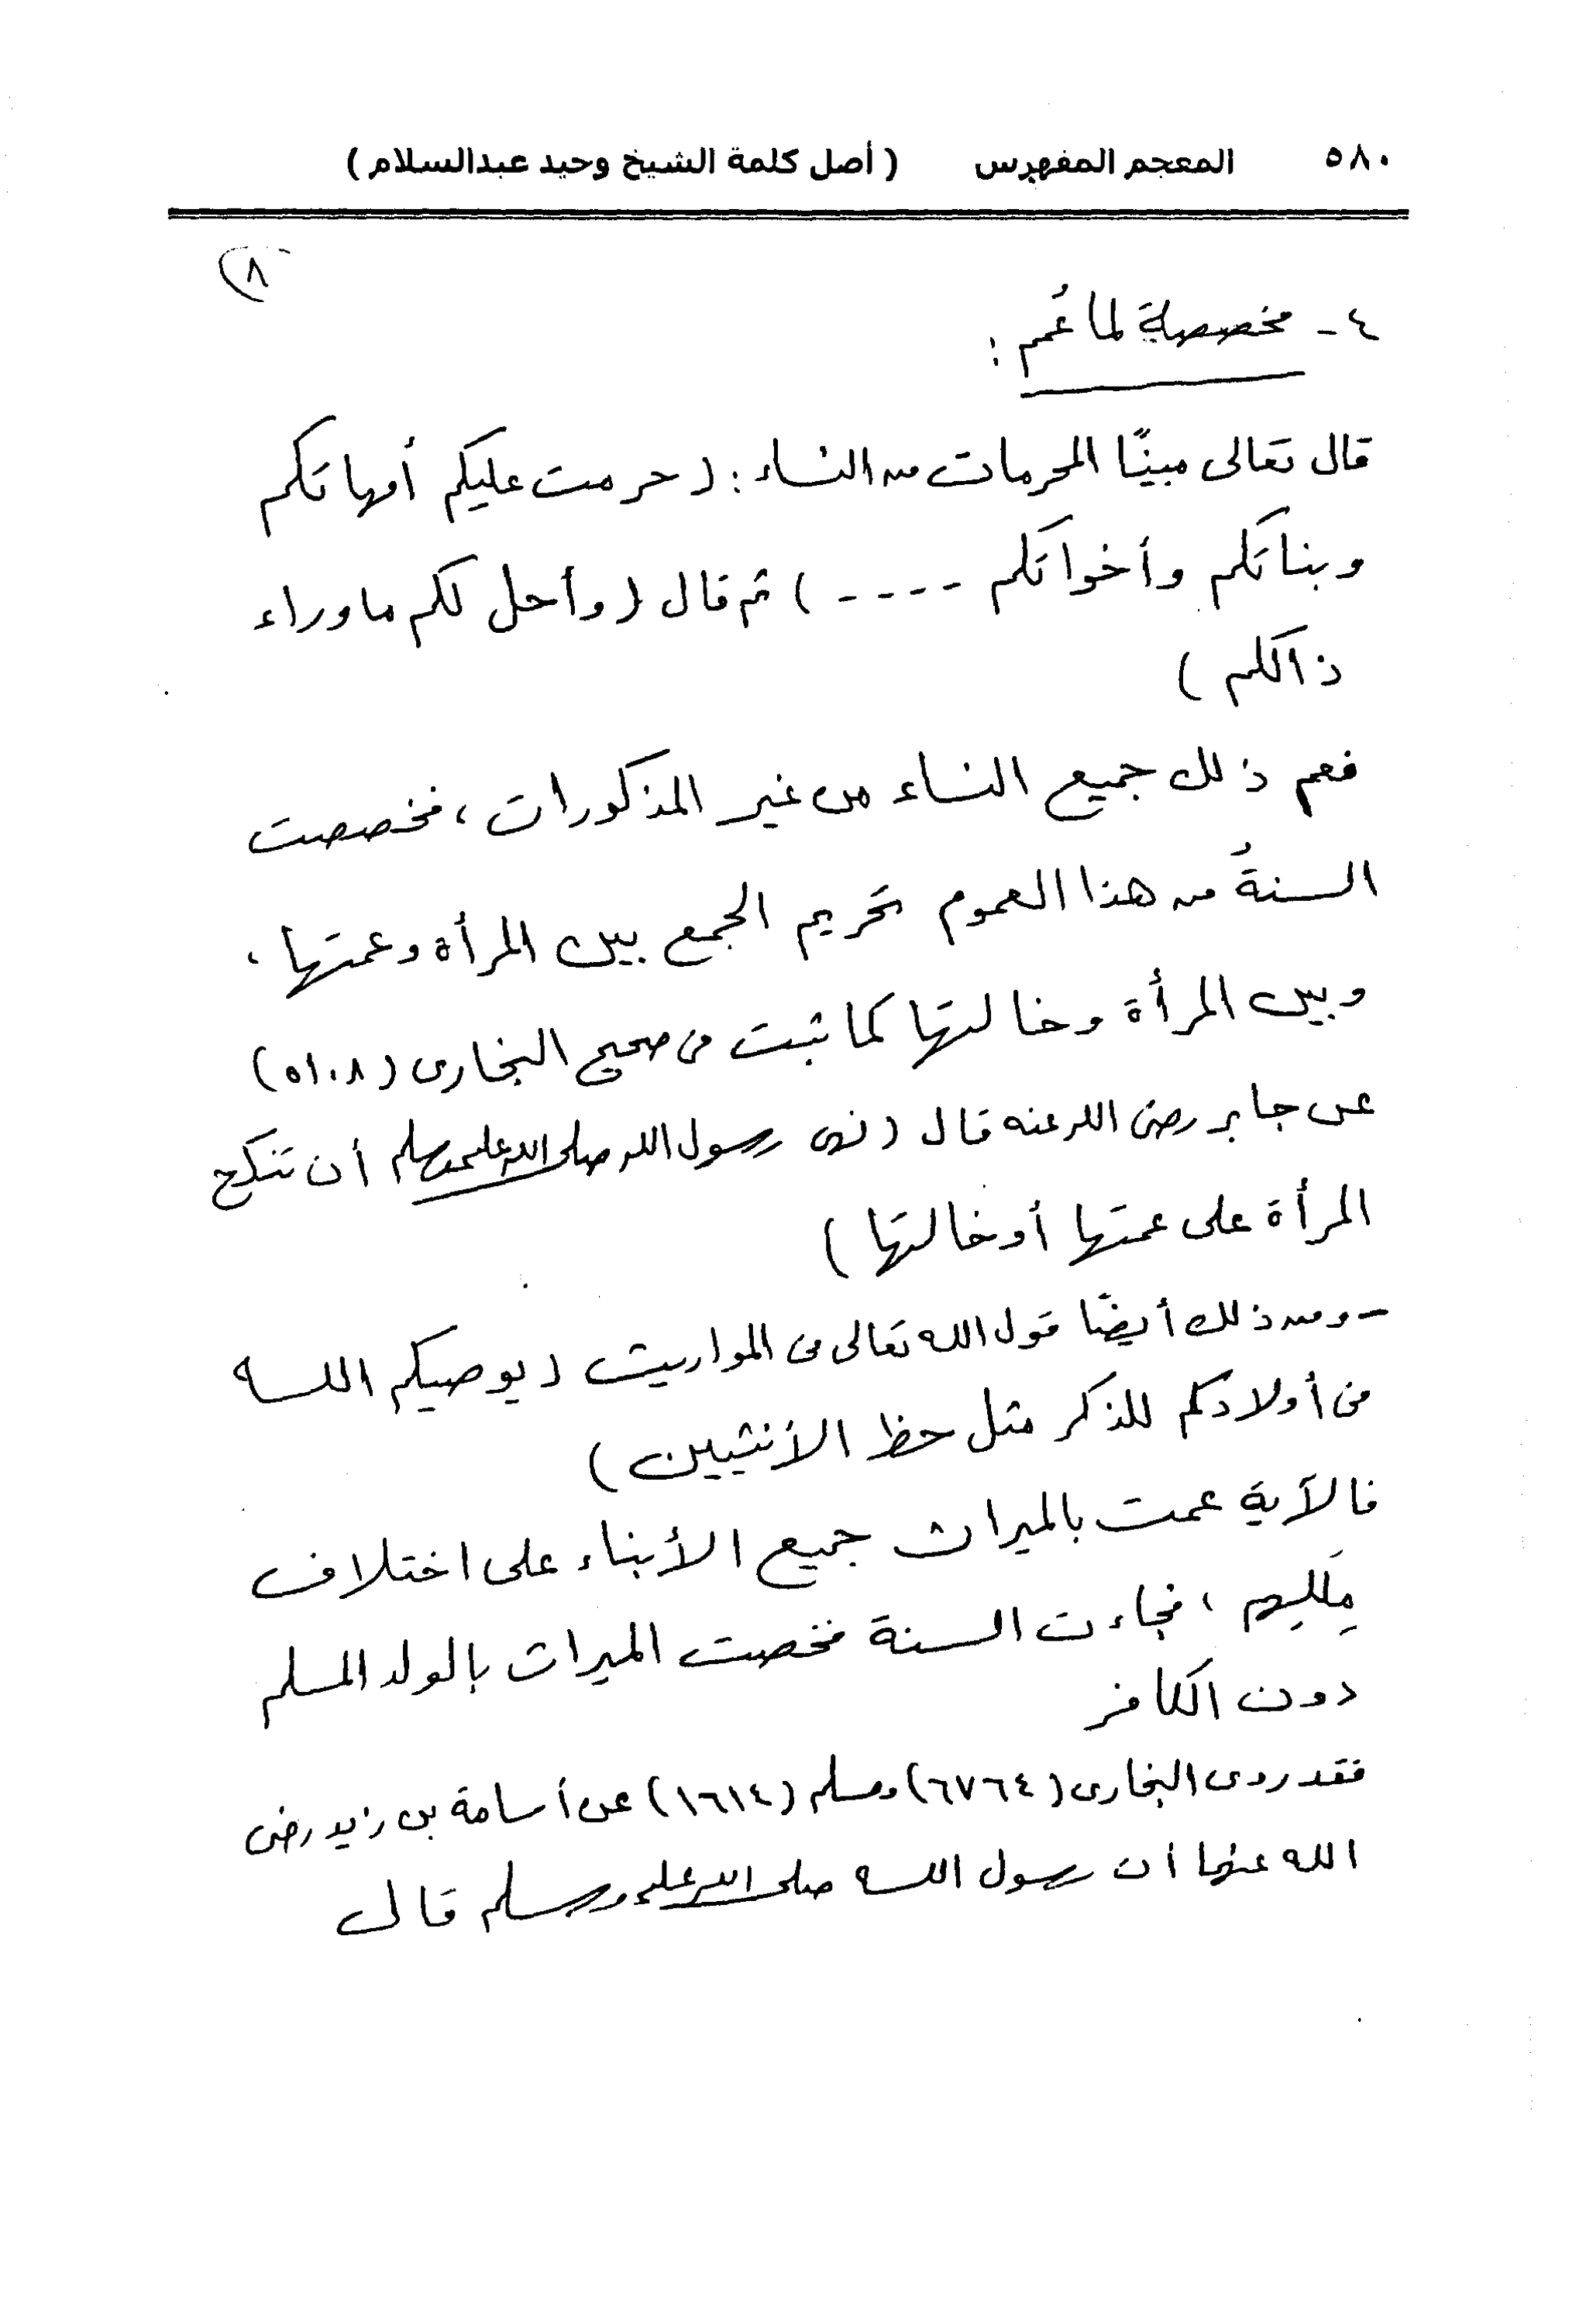 ٥٨٠ المعجم المفهرس ( أصل كلمة الشيخ وحيد عبدالسلام )
٨
٤ - مخصصة لما عُمم :
قال تعالى مبينًا المحرمات من النساء : ( حرمت عليكم أمهاتكم
وبناتكم وأخواتكم - - - - ) ثم قال ( وأحل لكم ما وراء
ذالكم )
فعم ذلك جميع النساء من غير المذكورات ، فخصصت
السنةُ من هذا العموم تحريم الجمع بين المرأة وعمتها ،
وبين المرأة وخالتها كما ثبت في صحيح البخارى ( ٥١٠٨ )
عن جابر رضى الله عنه قال ( نهى رسول الله صلى الله عليه وسلم أن تنكح
المرأة على عمتها أو خالتها )
- ومن ذلك أيضًا قول الله تعالى فى المواريث ( يوصيكم الله
فى أولادكم للذكر مثل حظ الأنثيين )
فالآية عمت بالميراث جميع الأبناء على اختلاف
مِلَلِهم ، فجاءت السنة فخصت الميراث بالولد المسلم
دون الكافر
فقد روى البخارى ( ٦٧٦٤ ) ومسلم ( ١٦١٤ ) عن أسامة بن زيد رضى
الله عنهما أن رسول الله صلى الله عليه وسلم قال